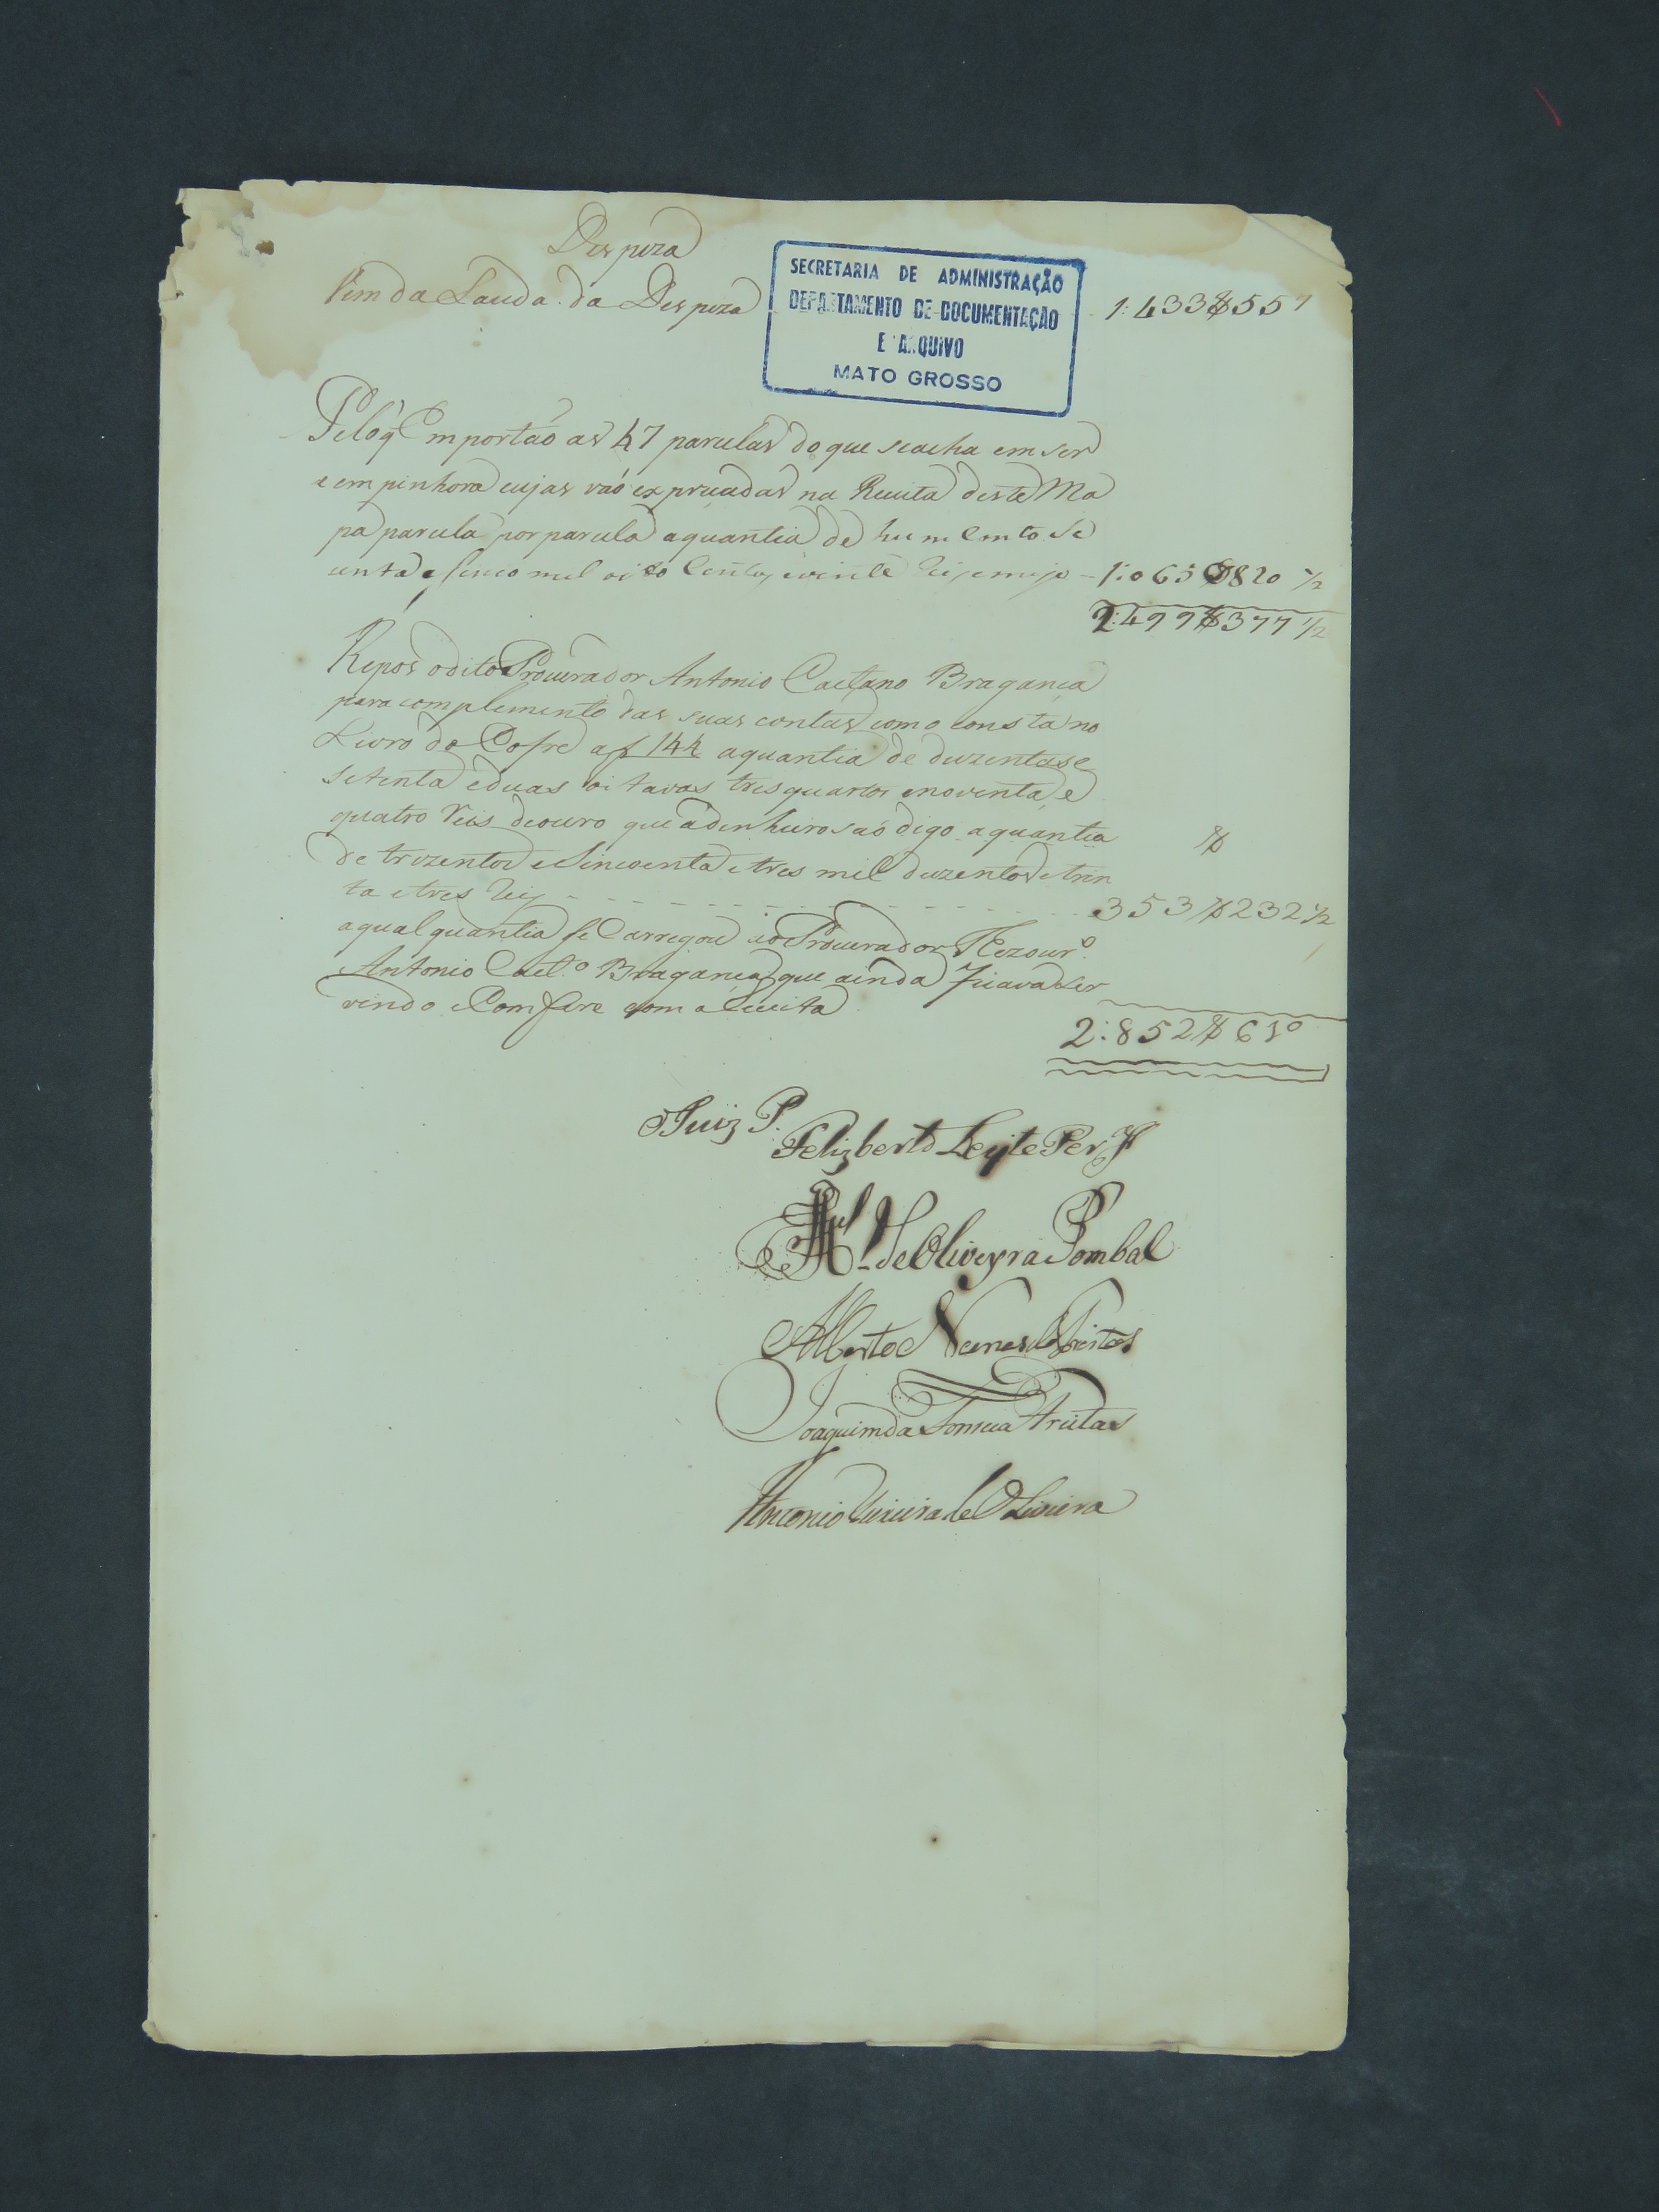 Despeza
Vem da Lauda da Despeza 1:433$557
SECRETARIA DE ADMINISTRAÇÃO
DEPARTAMENTO DE DOCUMENTAÇÃO
E ARQUIVO
MATO GROSSO
Pelo q̃ Emportão as 47 parcelas do que seacha em ser
e em pinhora cujas vaó expreçadas na Receita deste Ma
pa parcela por parcela aquantia de hum Conto Se
centa e sinco mil oito Centos, e vinte reis e meyo - 1:065$820 1/2
2:499$377 1/2
Repos o dito Procurador Antonio Caetano Bragança
para complemento das suas contas como consta no
Livro do Cofre a f 144 aquantia de duzentas e
setenta e duas oitavas tres quartos e noventa, e
quatro reis de ouro que a dinheiro saó digo aquantia $
de trezentos e Sincoenta e tres mil duzentos e trin
ta e tres reis 353$232 1/2
aqual quantia se Carregou ao Procurador Thezour.º
Antonio Caet.º Bragança que ainda ficava Ser
vindo e Comfere com a Receita
2:852$610
Juiz P.
Felizberto Leyte Per.ª
M.el de Oliveyra Pombal
Alberto Nunes de
Joaquim da Fonseca Freitas
Antonio de Oliveira